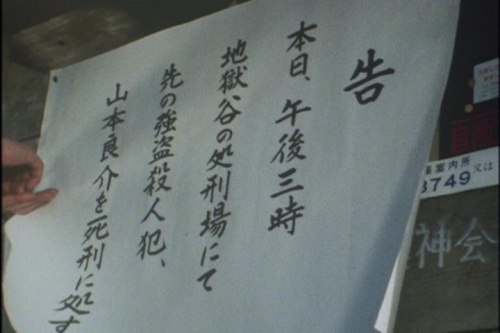 告
本日、午後三時
地獄谷の処刑場にて
先の強盗殺人犯、
山本良介を死刑に処す
案内所 又は
3749
神会